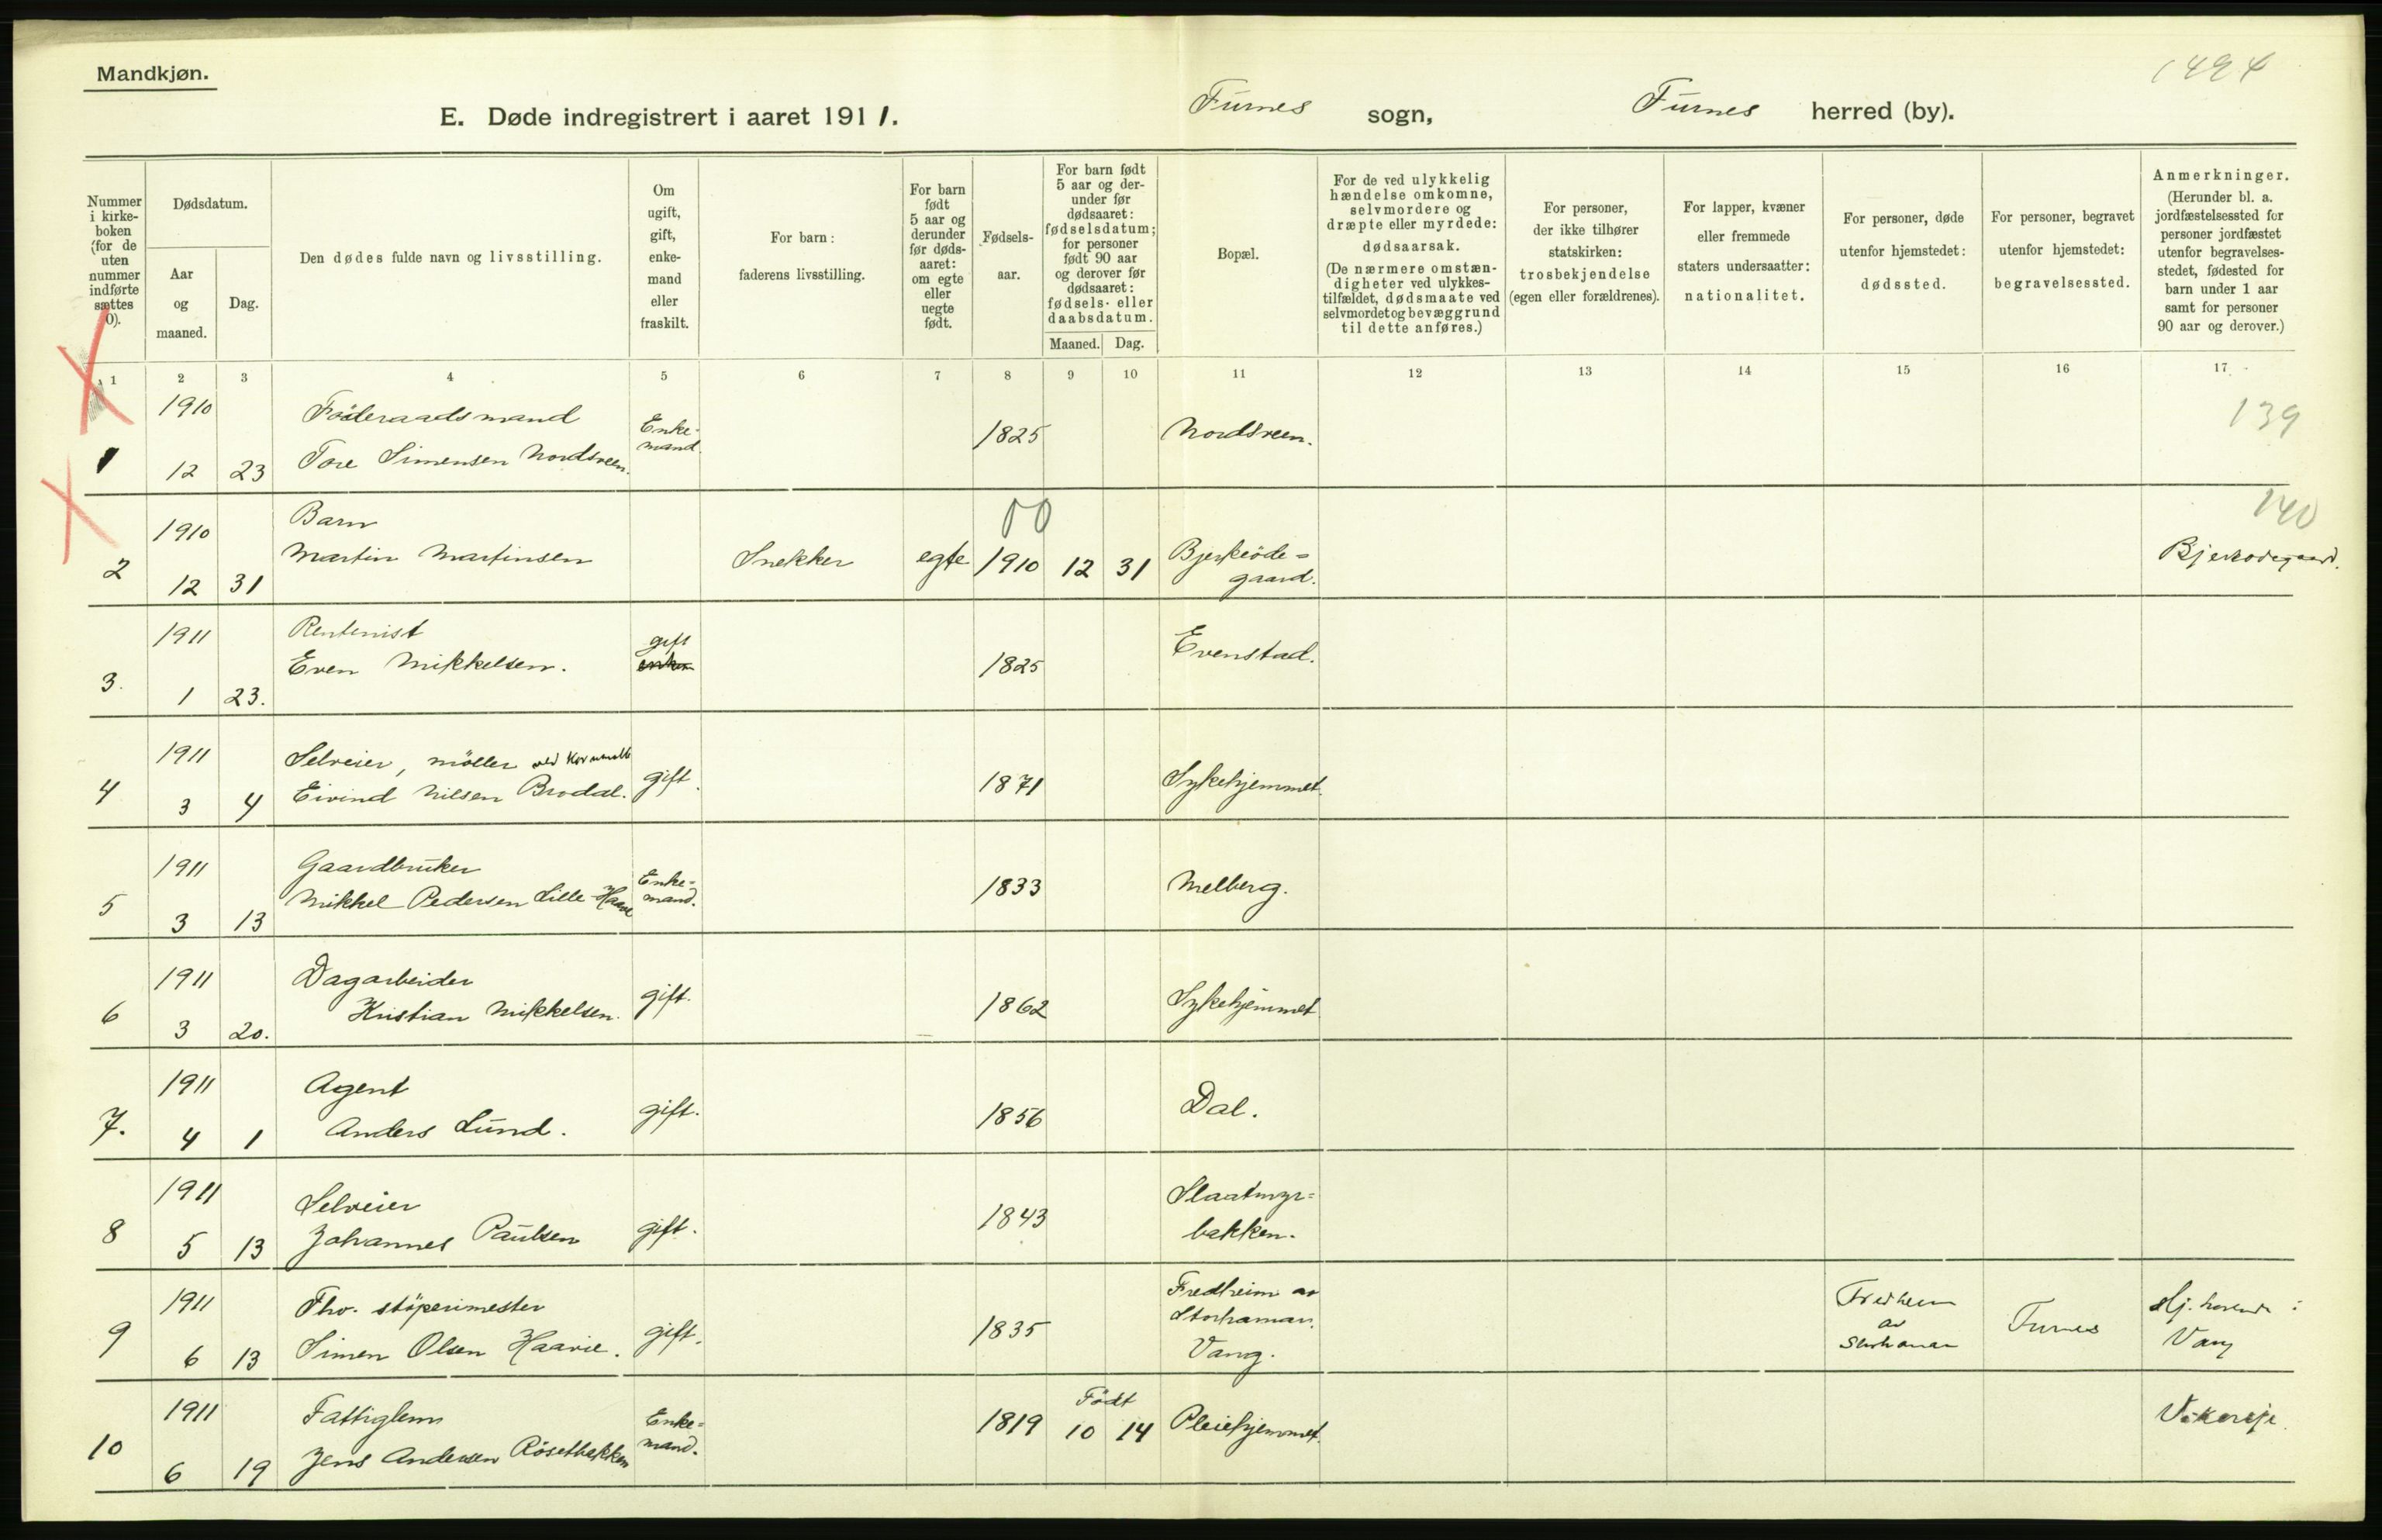 Mandkjøn.
1494
E. Døde indregistrert i aaret 1911.
Furnes sogn,
Furnes herred (by).
Nummer i kirke- boken (for de uten nummer indførte sættes 0).
Dødsdatum.
Aar og maaned.
Dag.
Den dødes fulde navn og livsstilling.
Om ugift, gift, enke- mand eller fraskilt.
For barn: faderens livsstilling.
For barn født 5 aar og derunder før døds- aaret: om egte eller uegte født.
Fødsels- aar.
For barn født 5 aar og der- under før dødsaaret: fødselsdatum; for personer født 90 aar og derover før dødsaaret: fødsels- eller daabsdatum.
Maaned. Dag.
Bopæl.
For de ved ulykkelig hændelse omkomne, selvmordere og dræpte eller myrdede: dødsaarsak. (De nærmere omstæn- digheter ved ulykkes- tilfældet, dødsmaate ved selvmordet og bevæggrund til dette anføres.)
For personer, der ikke tilhører statskirken: trosbekjendelse (egen eller forældrenes).
For lapper, kvæner eller fremmede staters undersaatter: nationalitet.
For personer, døde utenfor hjemstedet: dødssted.
For personer, begravet utenfor hjemstedet: begravelsessted.
Anmerkninger. (Herunder bl. a. jordfæstelsessted for personer jordfæstet utenfor begravelses- stedet, fødested for barn under 1 aar samt for personer 90 aar og derover.)
1 2 3 4 5 6 7 8 9 10 11 12 13 14 15 16 17
1 1910 12 23 Föderaadsmand Tore Simensen Nordsveen. Enke- mand. 1825 Nordsveen. 139
2 1910 12 31 Barn Martin Martinsen Snekker egte 1910 12 31 Bjerkeöde= gaard. 140 Bjerkodegaard.
3. 1911 1 23. Rentenist Even Mikkelsen. gift 1825 Evenstad.
4 1911 3 4 Selveier, möller ved Eivind Nilsen Brodal. gift. 1871 Sykehjemmet.
5 1911 3 13 Gaardbruker Mikkel Pedersen Lille-Haave Enke= mand. 1833 Melberg.
6 1911 3 20. Dagarbeider Kristian Mikkelsen. gift. 1862 Sykehjemmet
7. 1911 4 1 Agent Anders Lund. gift. 1856 Dal.
8 1911 5 13 Selveier Johannes Paulsen gift. 1843 Slaatmyr= bakken.
9 1911 6 13 Fhv. stöperimester Simen Olsen Haavie. gift. 1835 Fredheim av Storhamar. Vang. Fredheim av Storhamar Furnes Hj. hørende i Vang
10 1911 6 19 Fattiglem Jens Andersen Rösetbakken Enke= mand. 1819 Födt 10 14 Pleiehjemmet.